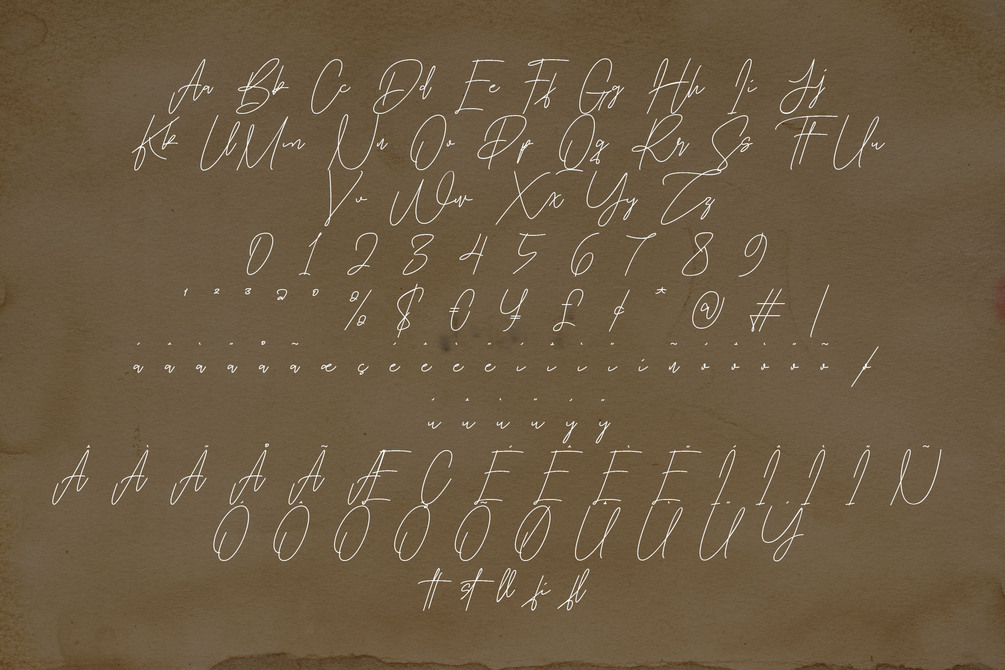 Aa Bb Cc Dd Ee Ff Gg Hh Ii Jj
Kk Ll Mm Nn Oo Pp Qq Rr Ss Tt Uu
Vv Ww Xx Yy Zz
0 1 2 3 4 5 6 7 8 9
¹ ² ³ ª º % $ € ¥ £ ¢ * @ # /
á â à ä å ã æ ç é ê è ë í î ì ï í ñ ó ô ò ö õ /
ú û ù ü ý ÿ
Â À Ä Å Ã Æ Ç É Ê È Ë Í Î Ì Ï Ñ
Ó Ô Ò Ö Õ Ø Ú Ù Ü Ý
tt st ll fi fl